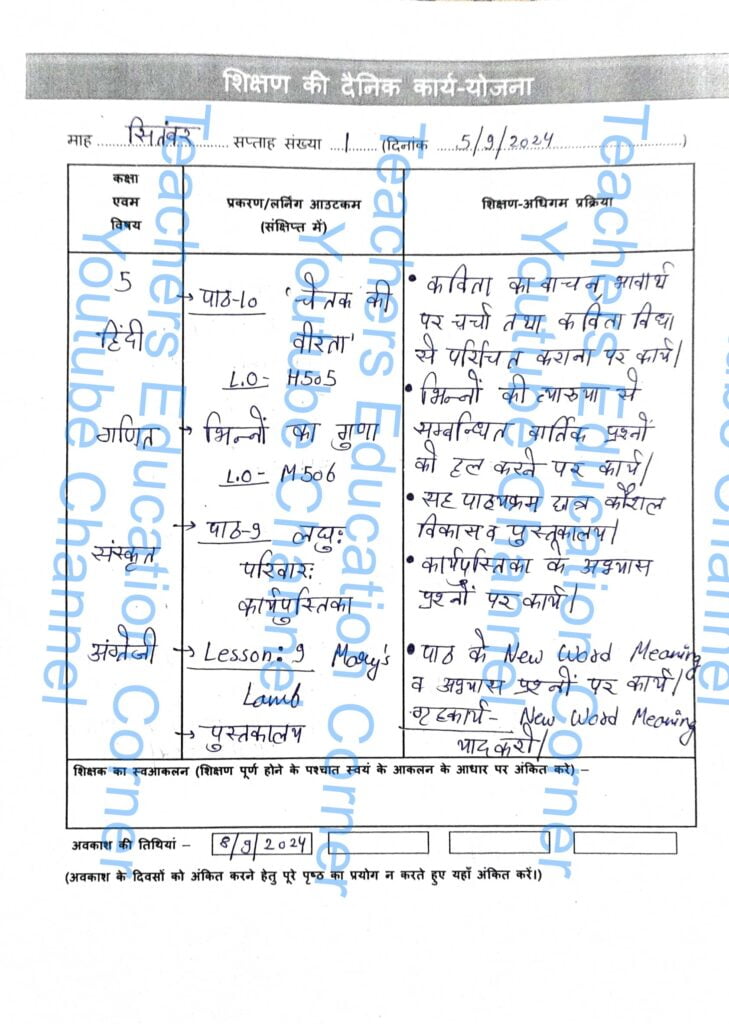 शिक्षण की दैनिक कार्य-योजना
माह सितंबर सप्ताह संख्या 1 (दिनांक 5/9/2024)
कक्षा
एवम
विषय
प्रकरण/लर्निंग आउटकम
(संक्षिप्त में)
शिक्षण-अधिगम प्रक्रिया
5
हिंदी
→ पाठ-10 'चेतक की
वीरता'
L.O- H505
• कविता का वाचन, भावार्थ
पर चर्चा तथा कविता विधा
से परिचित कराना पर कार्य।
गणित
→ भिन्नों का गुणा
L.O- M506
• भिन्नों की व्याख्या से
सम्बन्धित वार्तिक प्रश्नों
को हल करने पर कार्य।
संस्कृत
→ पाठ-9 लघुः
परिवारः
कार्यपुस्तिका
• सह पाठ्यक्रम छात्र कौशल
विकास व पुस्तकालय।
• कार्यपुस्तिका के अभ्यास
प्रश्नों पर कार्य।
अंग्रेजी
→ Lesson: 9 Mary's
Lamb
→ पुस्तकालय
• पाठ के New Word Meaning
व अभ्यास प्रश्नों पर कार्य।
गृहकार्य- New Word Meaning
याद करो।
शिक्षक का स्वआकलन (शिक्षण पूर्ण होने के पश्चात स्वयं के आकलन के आधार पर अंकित करें) –
अवकाश की तिथियां – 8/9/2024
(अवकाश के दिवसों को अंकित करने हेतु पूरे पृष्ठ का प्रयोग न करते हुए यहाँ अंकित करें।)
Teachers Education Corner
Youtube Channel
Teachers Education Corner
Youtube Channel
Teachers Education Corner
Youtube Channel